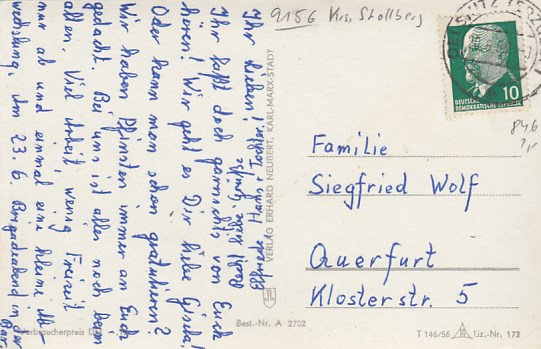 Ihr Lieben!
Ihr laßt doch garnichts von Euch
hören! Wie geht es Dir liebe Gisela!
Oder kann man schon gratulieren?
Wir haben Pfingsten immer an Euch
gedacht. Bei uns ist alles noch beim
alten. Viel Arbeit, wenig Freizeit
nur ab und einmal eine kleine Ab-
wechslung. Am 23. 6. Brigadeabend in der
Bar.
9156 Krs. Stollberg
846
VERLAG ERHARD NEUBERT, KARL-MARX-STADT
DEUTSCHE
DEMOKRATISCHE REPUBLIK
10
Familie
Siegfried Wolf
Querfurt
Klosterstr. 5
Verbraucherpreis
Best.-Nr. A 2702
T 146/56
Liz.-Nr. 172